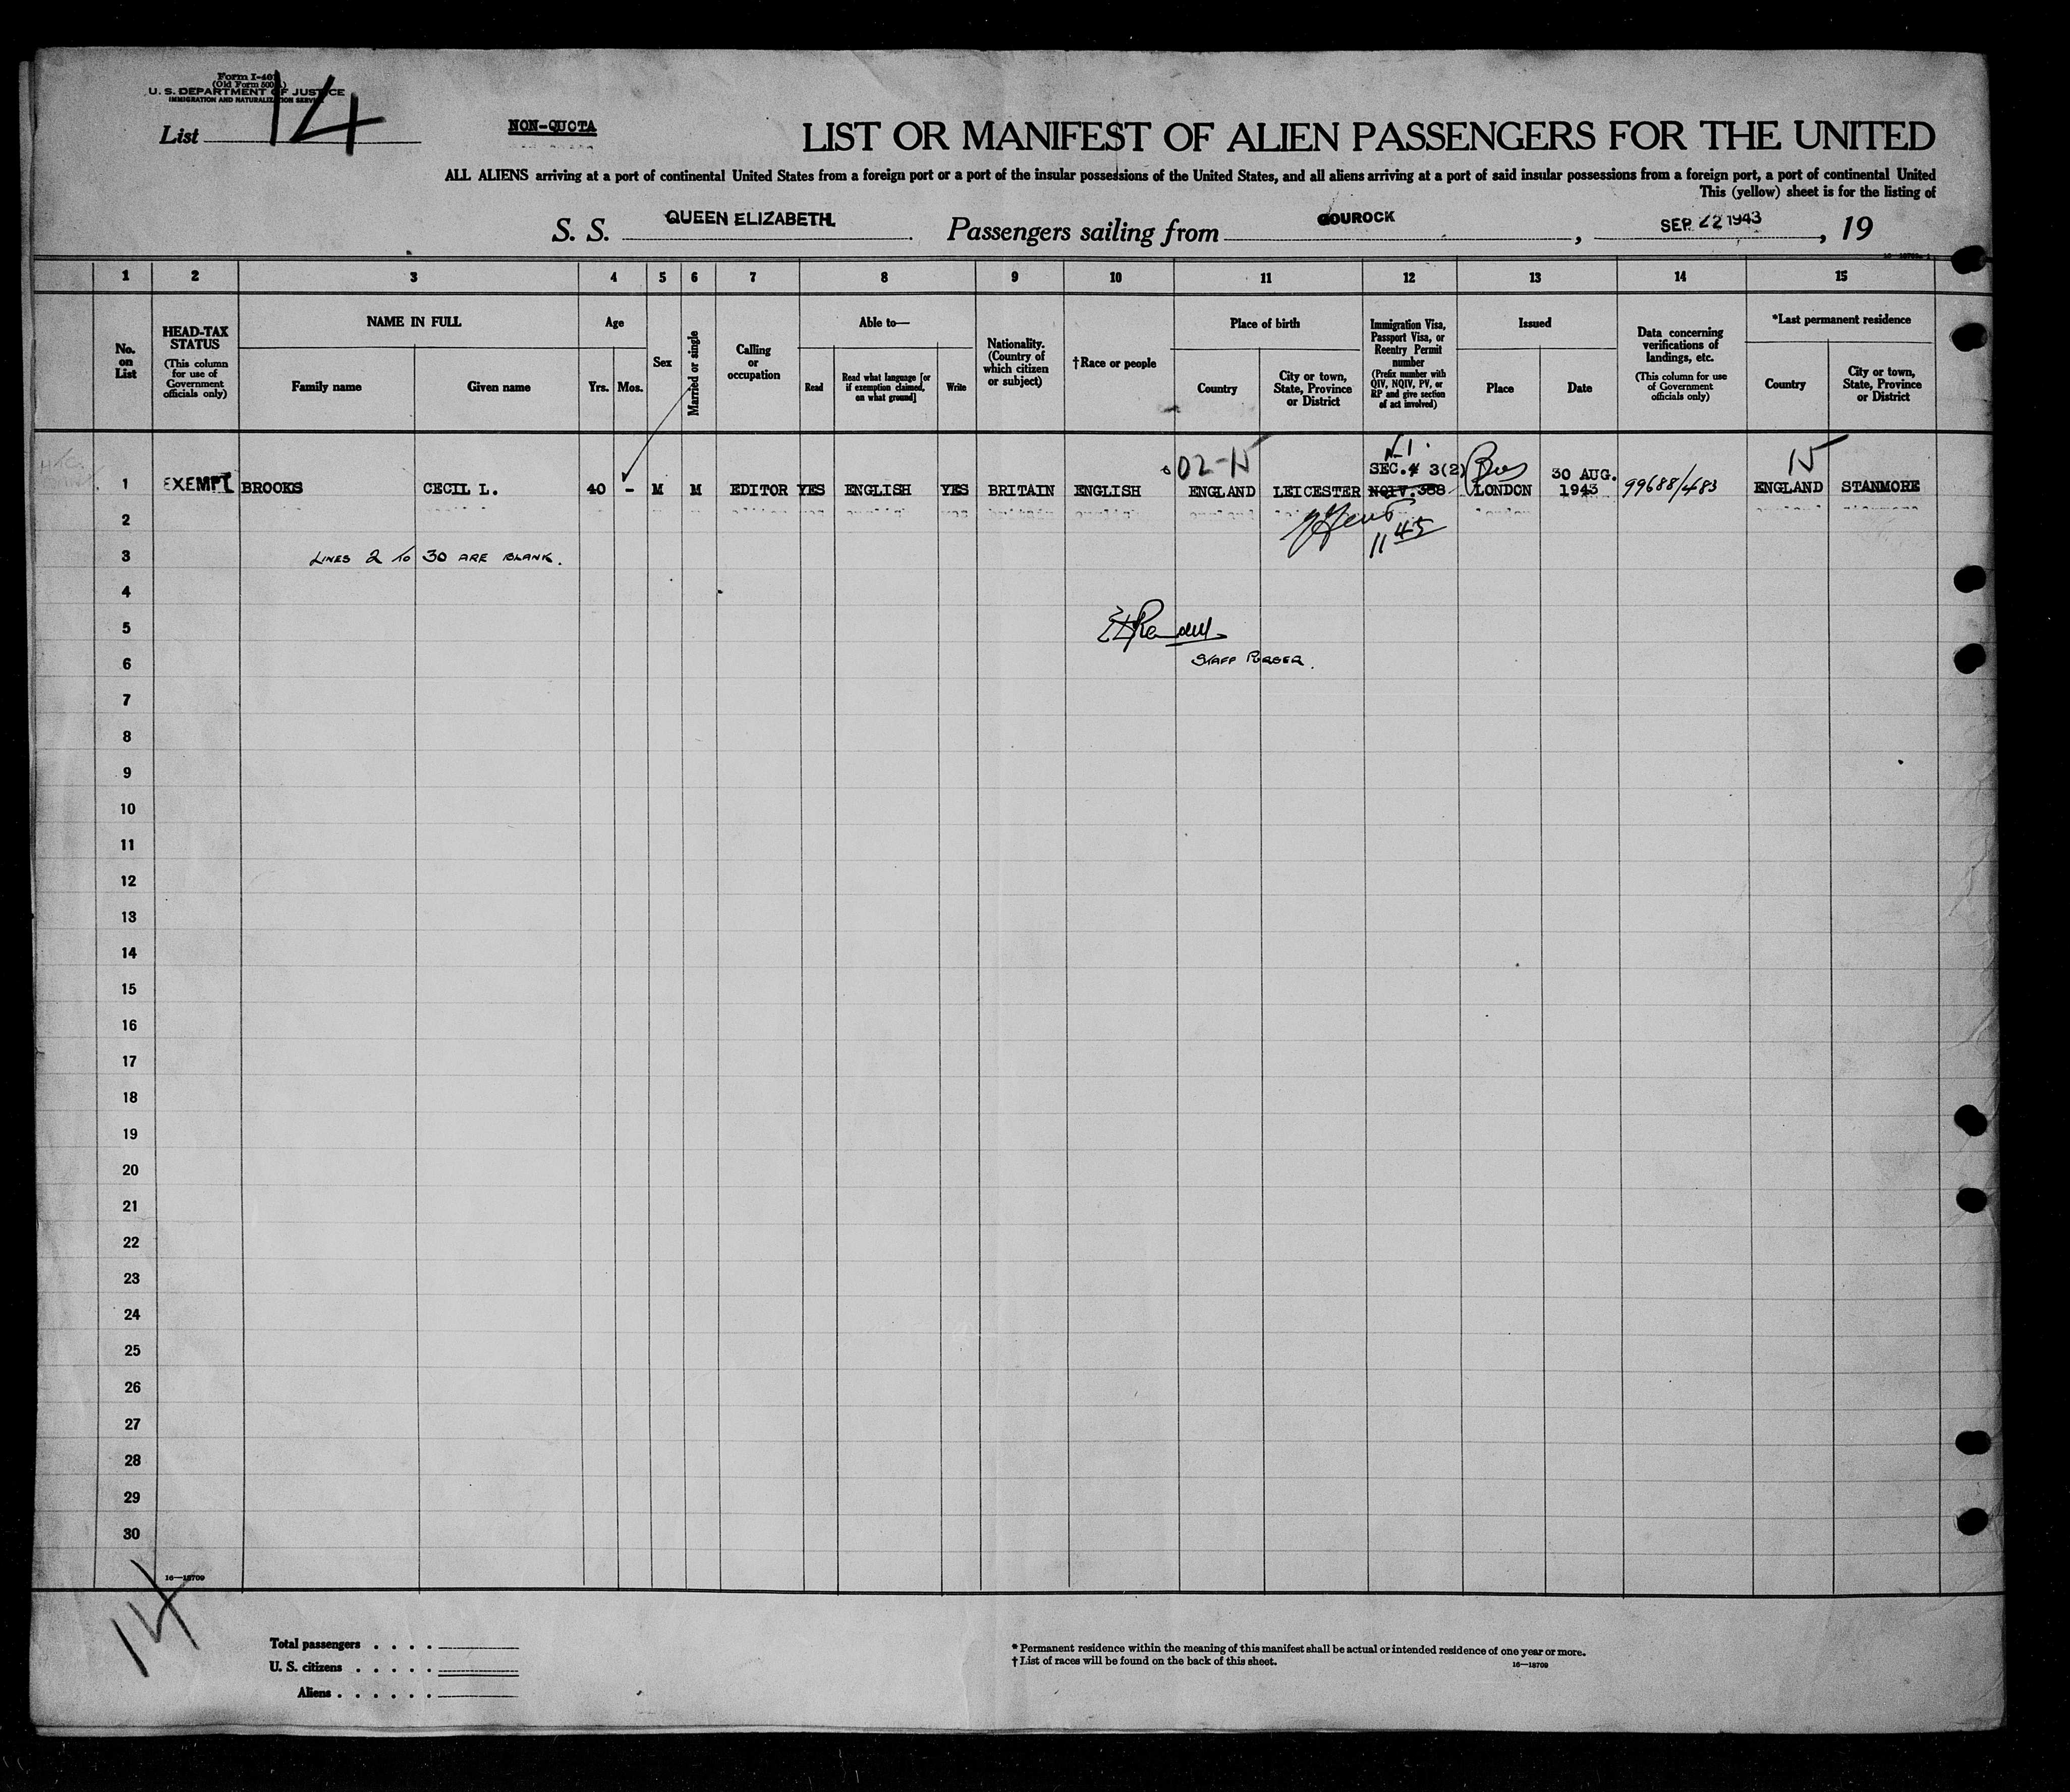 Form I-40
(Old Form 500)
U. S. DEPARTMENT OF JUSTICE
IMMIGRATION AND NATURALIZATION SERVICE
List 14
NON-QUOTA
LIST OR MANIFEST OF ALIEN PASSENGERS FOR THE UNITED
ALL ALIENS arriving at a port of continental United States from a foreign port or a port of the insular possessions of the United States, and all aliens arriving at a port of said insular possessions from a foreign port, a port of continental United
This (yellow) sheet is for the listing of
S. S. QUEEN ELIZABETH Passengers sailing from GOUROCK, SEP 22 1943, 19
1 2 3 4 5 6 7 8 9 10 11 12 13 14 15
No. on List
HEAD-TAX STATUS
(This column for use of Government officials only)
NAME IN FULL
Family name
Given name
Age
Yrs.
Mos.
Sex
Married or single
Calling or occupation
Able to—
Read
Read what language [or if exemption claimed, on what ground]
Write
Nationality. (Country of which citizen or subject)
†Race or people
Place of birth
Country
City or town, State, Province or District
Immigration Visa, Passport Visa, or Reentry Permit number
(Prefix number with QIV, NQIV, PV, or RP and give section of act involved)
Issued
Place
Date
Data concerning verifications of landings, etc.
(This column for use of Government officials only)
*Last permanent residence
Country
City or town, State, Province or District
02-15
SEC. 3(2)
30 AUG.
15
1 EXEMPT BROOKS CECIL L. 40 - M M EDITOR YES ENGLISH YES BRITAIN ENGLISH ENGLAND LEICESTER NQIV.388 LONDON 1943 99688/483 ENGLAND STANMORE
2
11 45
3 LINES 2 TO 30 ARE BLANK.
4
5
6 STAFF PURSER.
7
8
9
10
11
12
13
14
15
16
17
18
19
20
21
22
23
24
25
26
27
28
29
30
16—18709
14
Total passengers . . . .
U. S. citizens . . . . .
Aliens . . . . . .
* Permanent residence within the meaning of this manifest shall be actual or intended residence of one year or more.
† List of races will be found on the back of this sheet.
16—18709